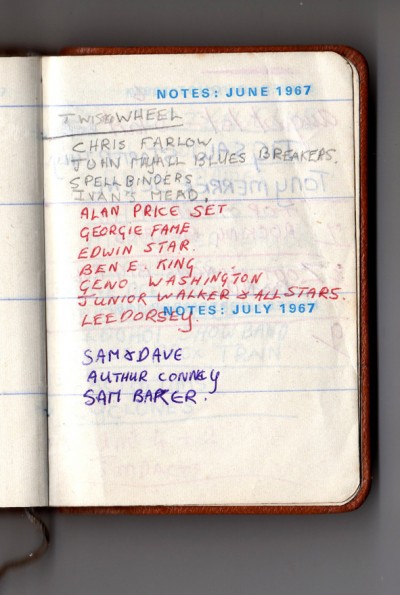 NOTES: JUNE 1967
TWISTED WHEEL
CHRIS FARLOW
JOHN MYALL BLUES BREAKERS.
SPELLBINDERS
IVAN'S MEAD.
ALAN PRICE SET
GEORGIE FAME
EDWIN STAR.
BEN E. KING
GENO WASHINGTON
JUNIOR WALKER & ALL STARS.
LEE DORSEY.
NOTES: JULY 1967
SAM & DAVE
AUTHUR CONNEY
SAM BAKER.